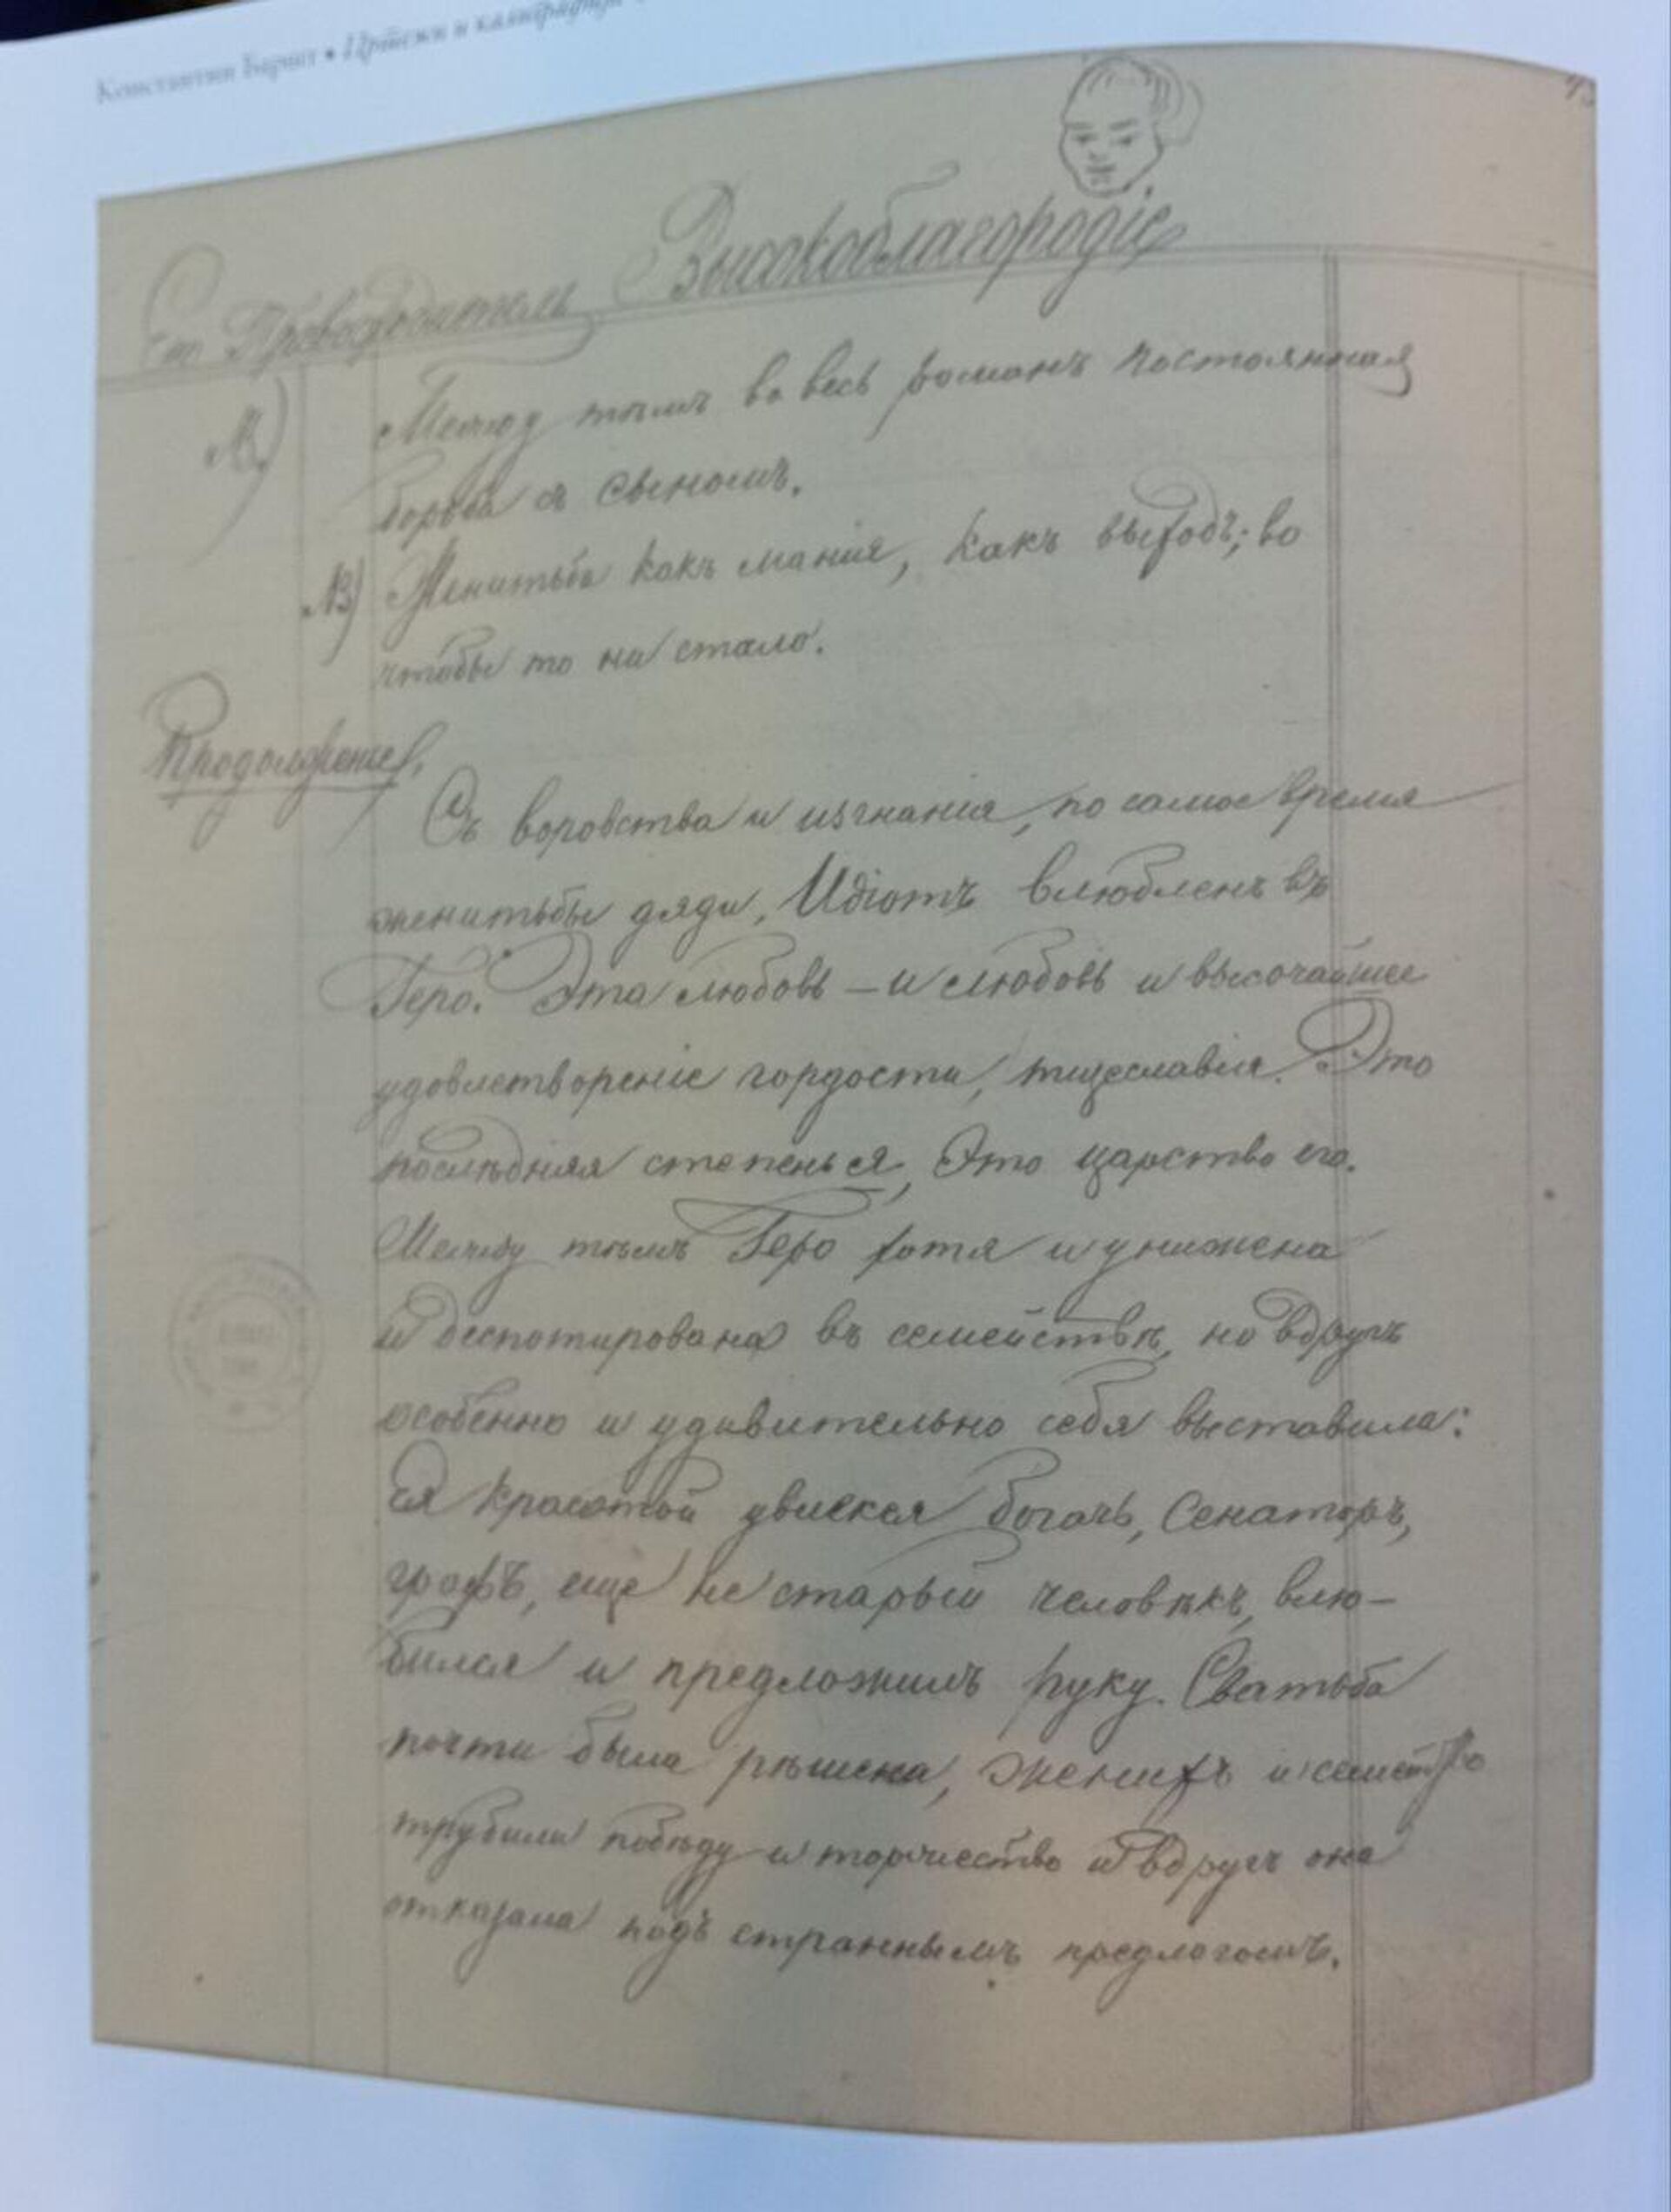 Константин Баршт • Цртежи и калиграфија
Его Превосходитель

Высокоблагородіе
№)
Между тѣмъ во весь романъ постоянная
борьба съ сыномъ.
№) Женитьба какъ манія, какъ выходъ; во
чтобы то ни стало.
Продолженіе.
Съ воровства и изгнанія, по самое время
женитьбы дяди, Идіотъ влюбленъ въ
Геро. Эта любовь — и любовь и высочайшее
удовлетвореніе гордости, тщеславія. Это
послѣдняя степень я, Это царство его.
Между тѣмъ Геро хотя и унижена
и деспотирована въ семействѣ, но вдругъ
особенно и удивительно себя выставила:
Ея красотой увлекся богачь, Сенаторъ,
графъ, еще не старый человѣкъ, влю-
бился и предложилъ руку. Сватьба
почти была рѣшена, женихъ и семейство
трубили побѣду и торжество и вдругъ она
отказала подъ страннымъ предлогомъ.